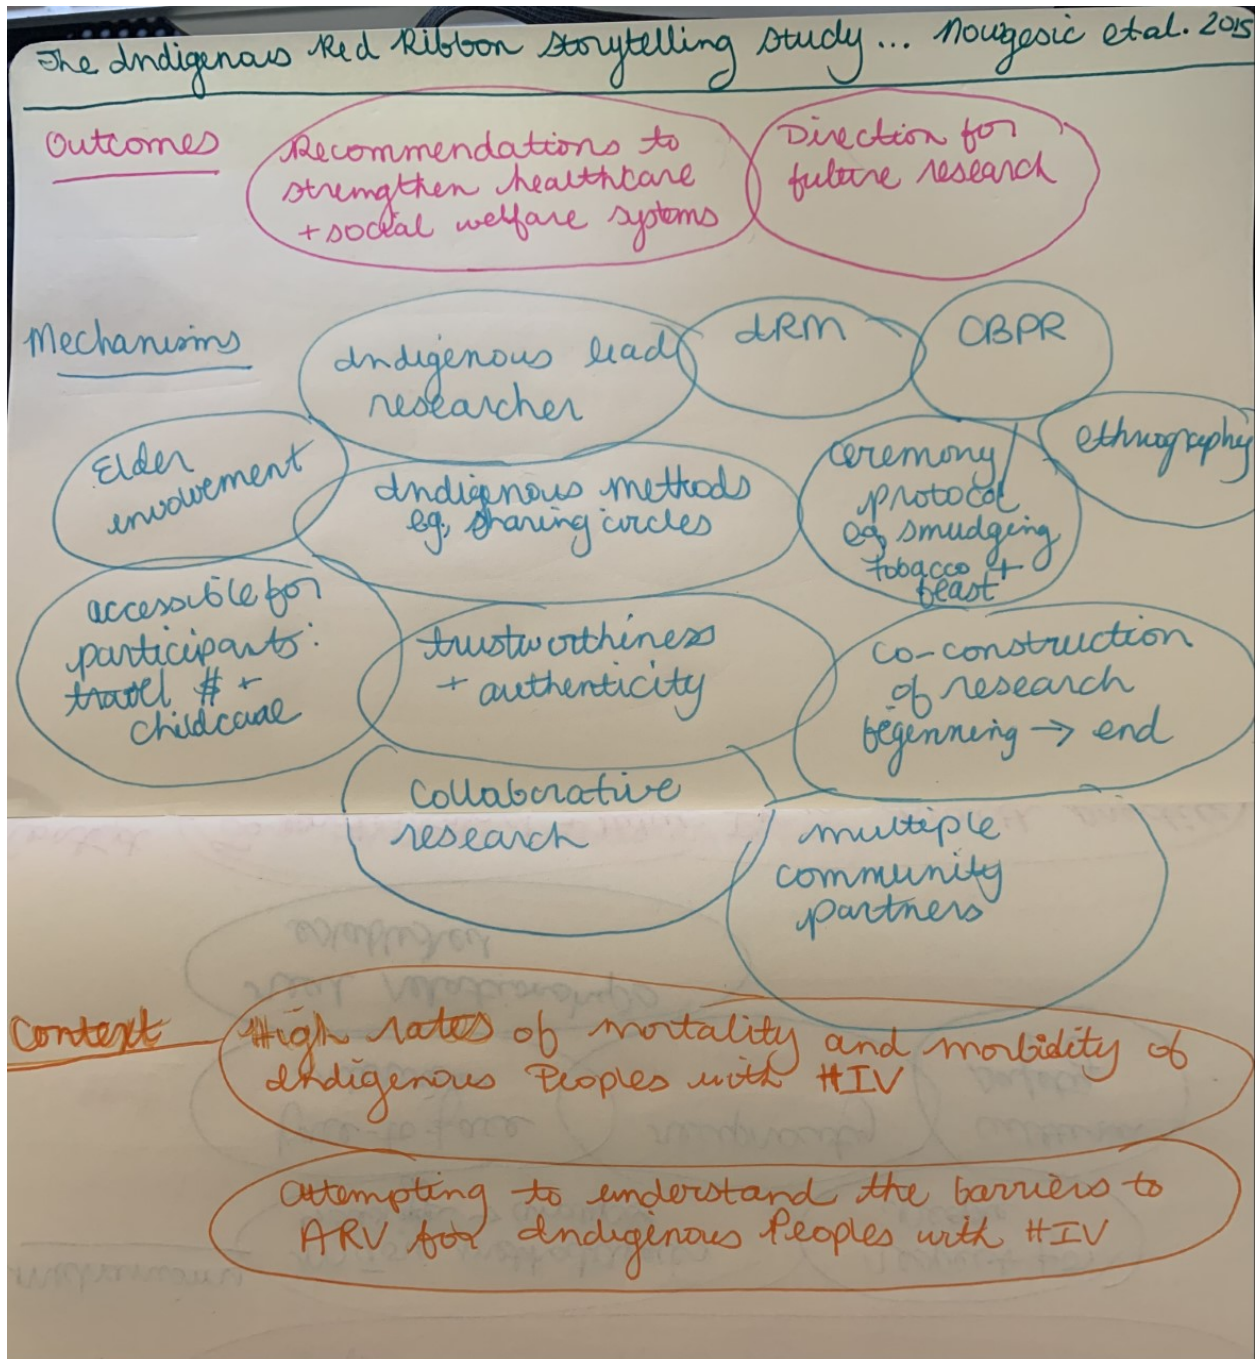 The Indigenous Red Ribbon Storytelling Study... Nowgesic et al. 2015
Outcomes
Recommendations to
strengthen healthcare
+ social welfare systems
Direction for
future research
Mechanisms
Indigenous lead
researcher
IRM
CBPR
ethnography
Elder
involvement
Indigenous methods
eg, sharing circles
ceremony/
protocol
eg, smudging
tobacco +
feast
accessible for
participants:
travel $ +
childcare
trustworthiness
+ authenticity
co-construction
of research
beginning → end
Collaborative
research
multiple
community
partners
Context
High rates of mortality and morbidity of
Indigenous Peoples with HIV
Attempting to understand the barriers to
ARV for Indigenous Peoples with HIV